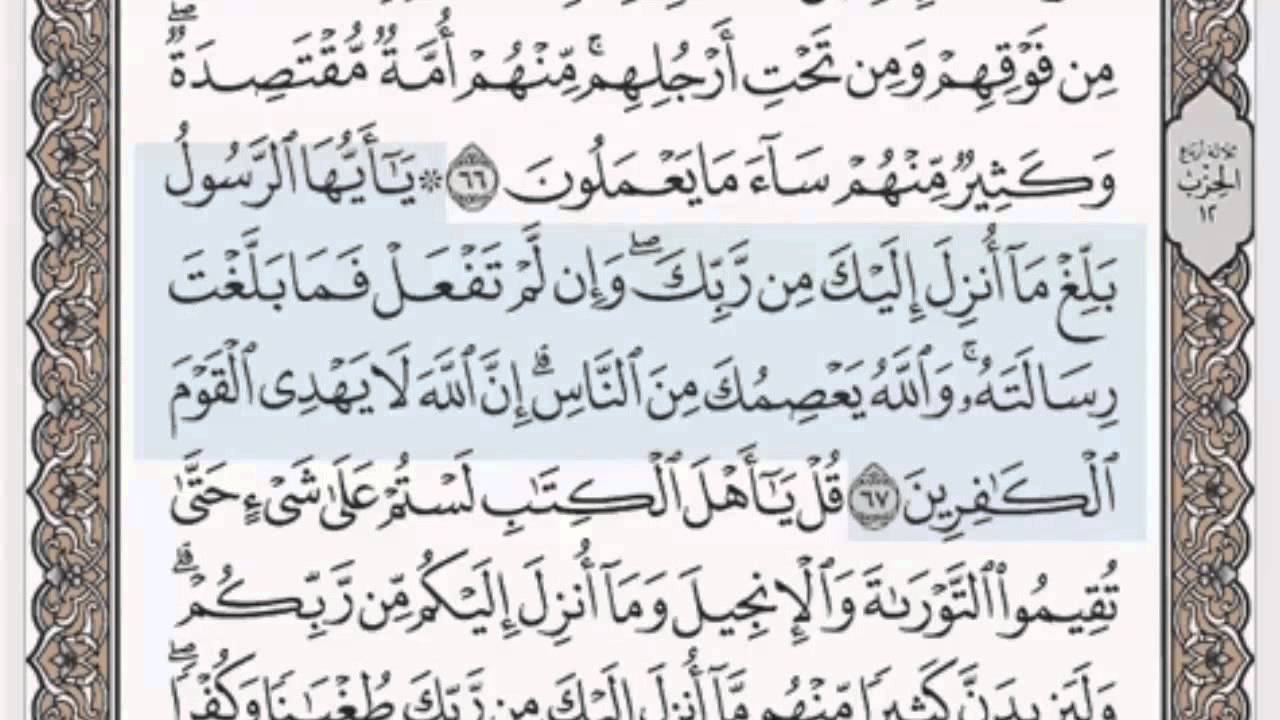 مِن فَوۡقِهِمۡ وَمِن تَحۡتِ أَرۡجُلِهِمۚ مِّنۡهُمۡ أُمَّةٞ مُّقۡتَصِدَةٞۖ
وَكَثِيرٞ مِّنۡهُمۡ سَآءَ مَا يَعۡمَلُونَ ٦٦ ۞ يَٰٓأَيُّهَا ٱلرَّسُولُ
بَلِّغۡ مَآ أُنزِلَ إِلَيۡكَ مِن رَّبِّكَۖ وَإِن لَّمۡ تَفۡعَلۡ فَمَا بَلَّغۡتَ
رِسَالَتَهُۥۚ وَٱللَّهُ يَعۡصِمُكَ مِنَ ٱلنَّاسِۗ إِنَّ ٱللَّهَ لَا يَهۡدِي ٱلۡقَوۡمَ
ٱلۡكَٰفِرِينَ ٦٧ قُلۡ يَٰٓأَهۡلَ ٱلۡكِتَٰبِ لَسۡتُمۡ عَلَىٰ شَيۡءٍ حَتَّىٰ
تُقِيمُواْ ٱلتَّوۡرَىٰةَ وَٱلۡإِنجِيلَ وَمَآ أُنزِلَ إِلَيۡكُم مِّن رَّبِّكُمۡۗ
وَلَيَزِيدَنَّ كَثِيرٗا مِّنۡهُم مَّآ أُنزِلَ إِلَيۡكَ مِن رَّبِّكَ طُغۡيَٰنٗا وَكُفۡرٗاۖ
ثلاثة أرباع
الحزب
١٢